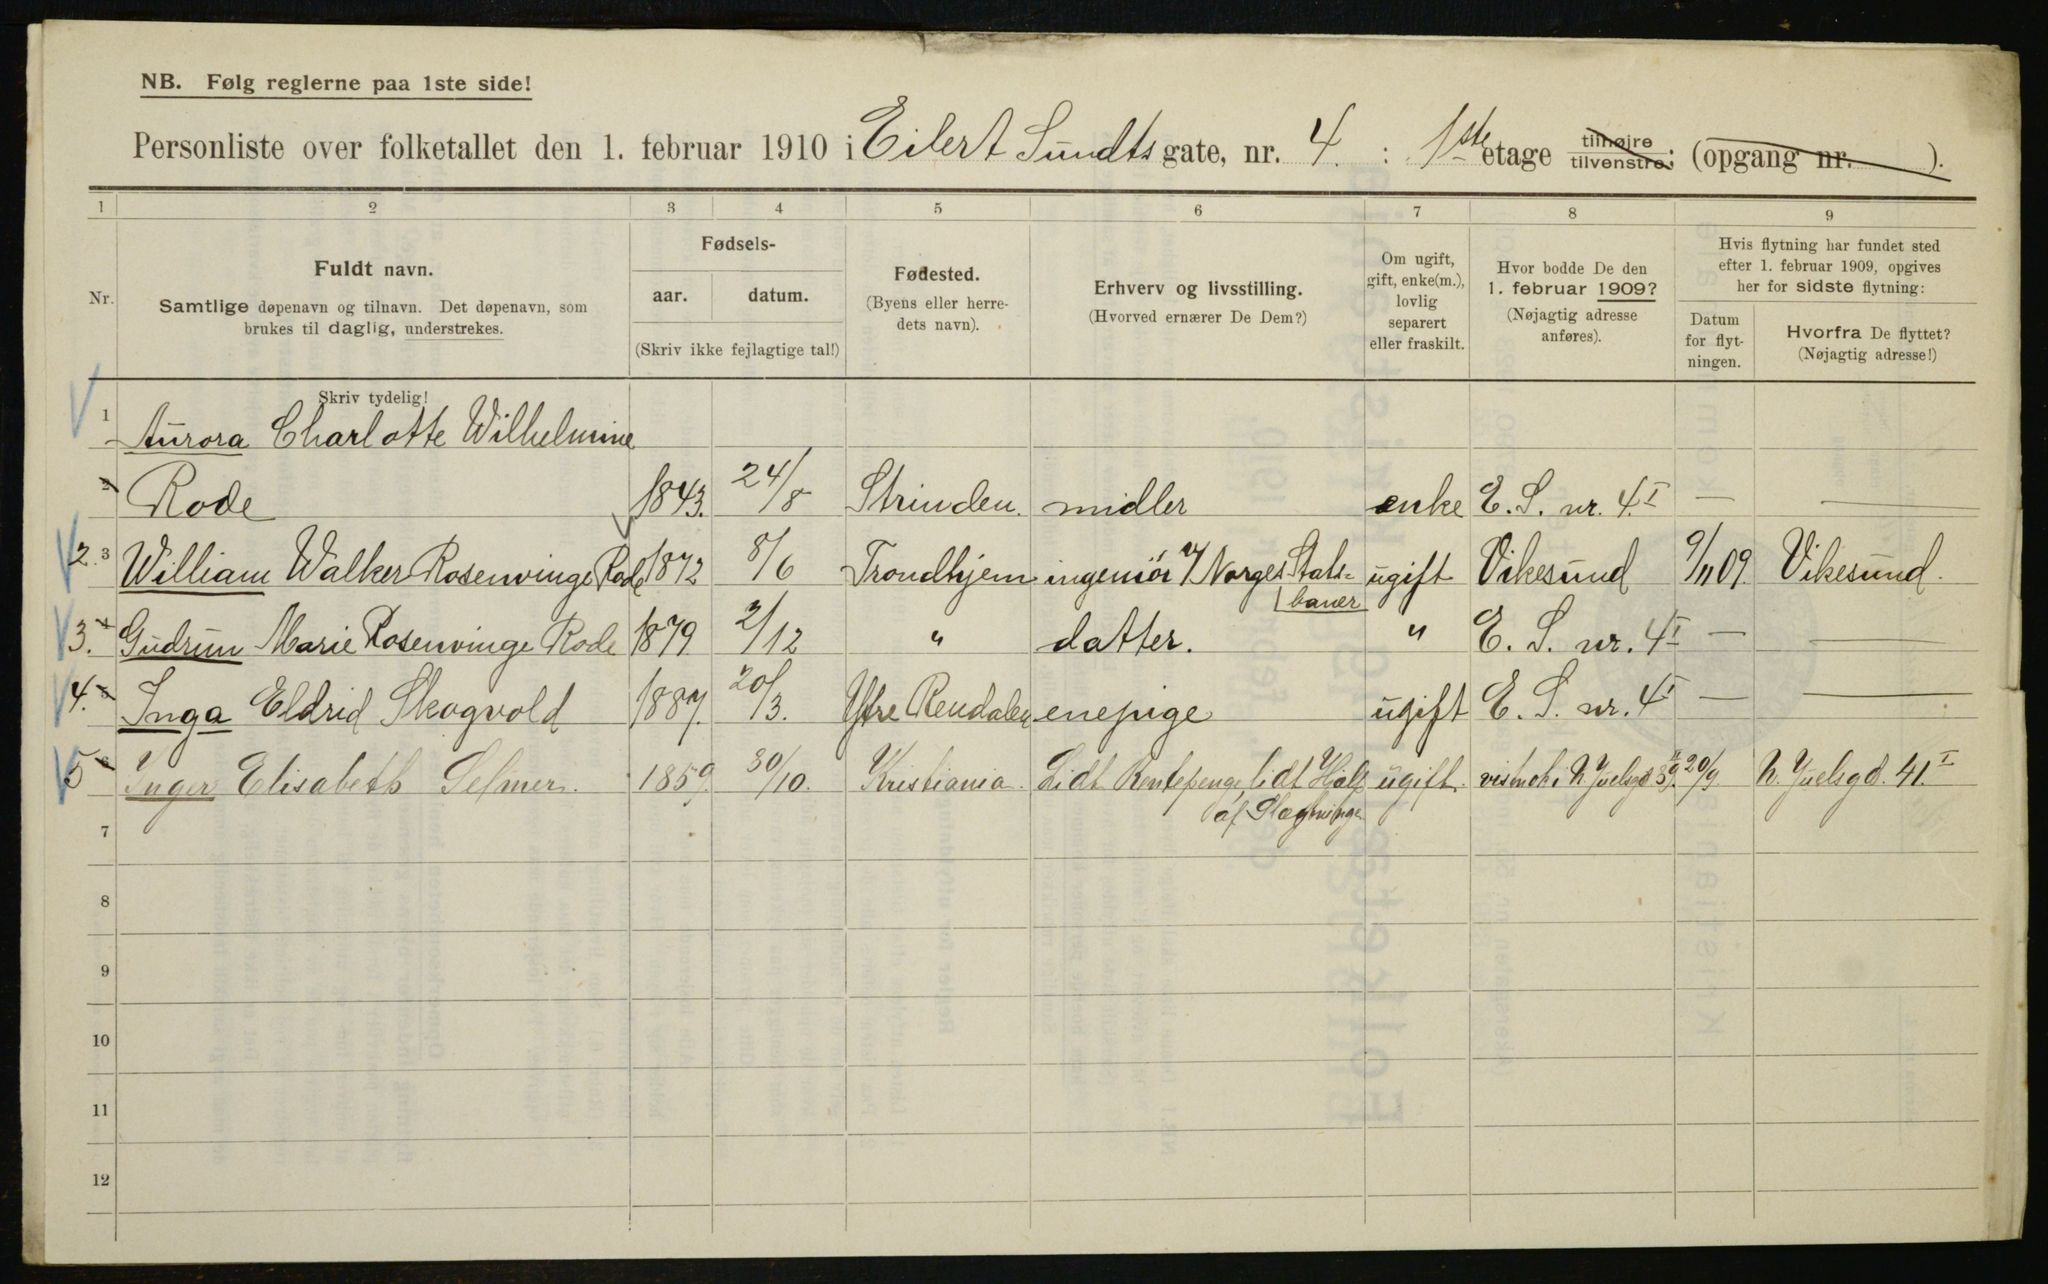 NB. Følg reglerne paa 1ste side!
Personliste over folketallet den 1. februar 1910 i Eilert Sundts gate, nr. 4. : 1ste etage tilhøjre tilvenstre; (opgang nr. ).
1 2 3 4 5 6 7 8 9
Nr.
Fuldt navn.
Samtlige døpenavn og tilnavn. Det døpenavn, som
brukes til daglig, understrekes.
Fødsels-
aar. datum.
(Skriv ikke fejlagtige tal!)
Fødested.
(Byens eller herre-
dets navn).
Erhverv og livsstilling.
(Hvorved ernærer De Dem?)
Om ugift,
gift, enke(m.),
lovlig
separert
eller fraskilt.
Hvor bodde De den
1. februar 1909?
(Nøjagtig adresse
anføres).
Hvis flytning har fundet sted
efter 1. februar 1909, opgives
her for sidste flytning:
Datum
for flyt-
ningen.
Hvorfra De flyttet?
(Nøjagtig adresse!)
Skriv tydelig!
1 Aurora Charlotte Wilhelmine
2 Rode 1843. 24/8 Strinden. midler enke E. S. nr. 4 I — —
2. 3 William Walker Rosenvinge Rode 1872 8/6 Trondhjem ingeniør v/ Norges Stats= ugift Vikesund 9/11 09. Vikesund.
baner
3. 4 Gudrun Marie Rosenvinge Rode 1879 2/12 " datter. " E. S. nr. 4 I — —
4. 5 Inga Eldrid Skogvold 1887. 20/3. Ytre Rendalen enepige ugift E. S. nr. 4 I — —
5 6 Inger Elisabeth Selmer. 1859. 30/10. Kristiania. Lidt Rentepenge, lidt Hjælp ugift. N. Juelsgd 20/9 N. Juelsgd. 41. I
af Slægtninge
7
8
9
10
11
12